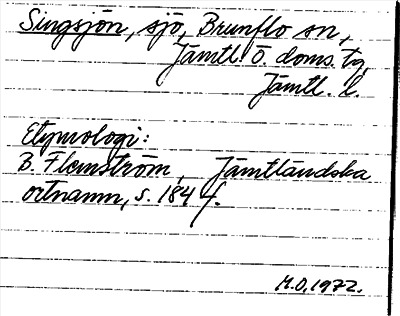 Singsjön, sjö, Brunflo sn,
Jämtl. Ö. doms. tg,
Jämtl. l.
Etymologi:
B. Flemström, Jämtländska
ortnamn, s. 184 f.
M.O. 1972.